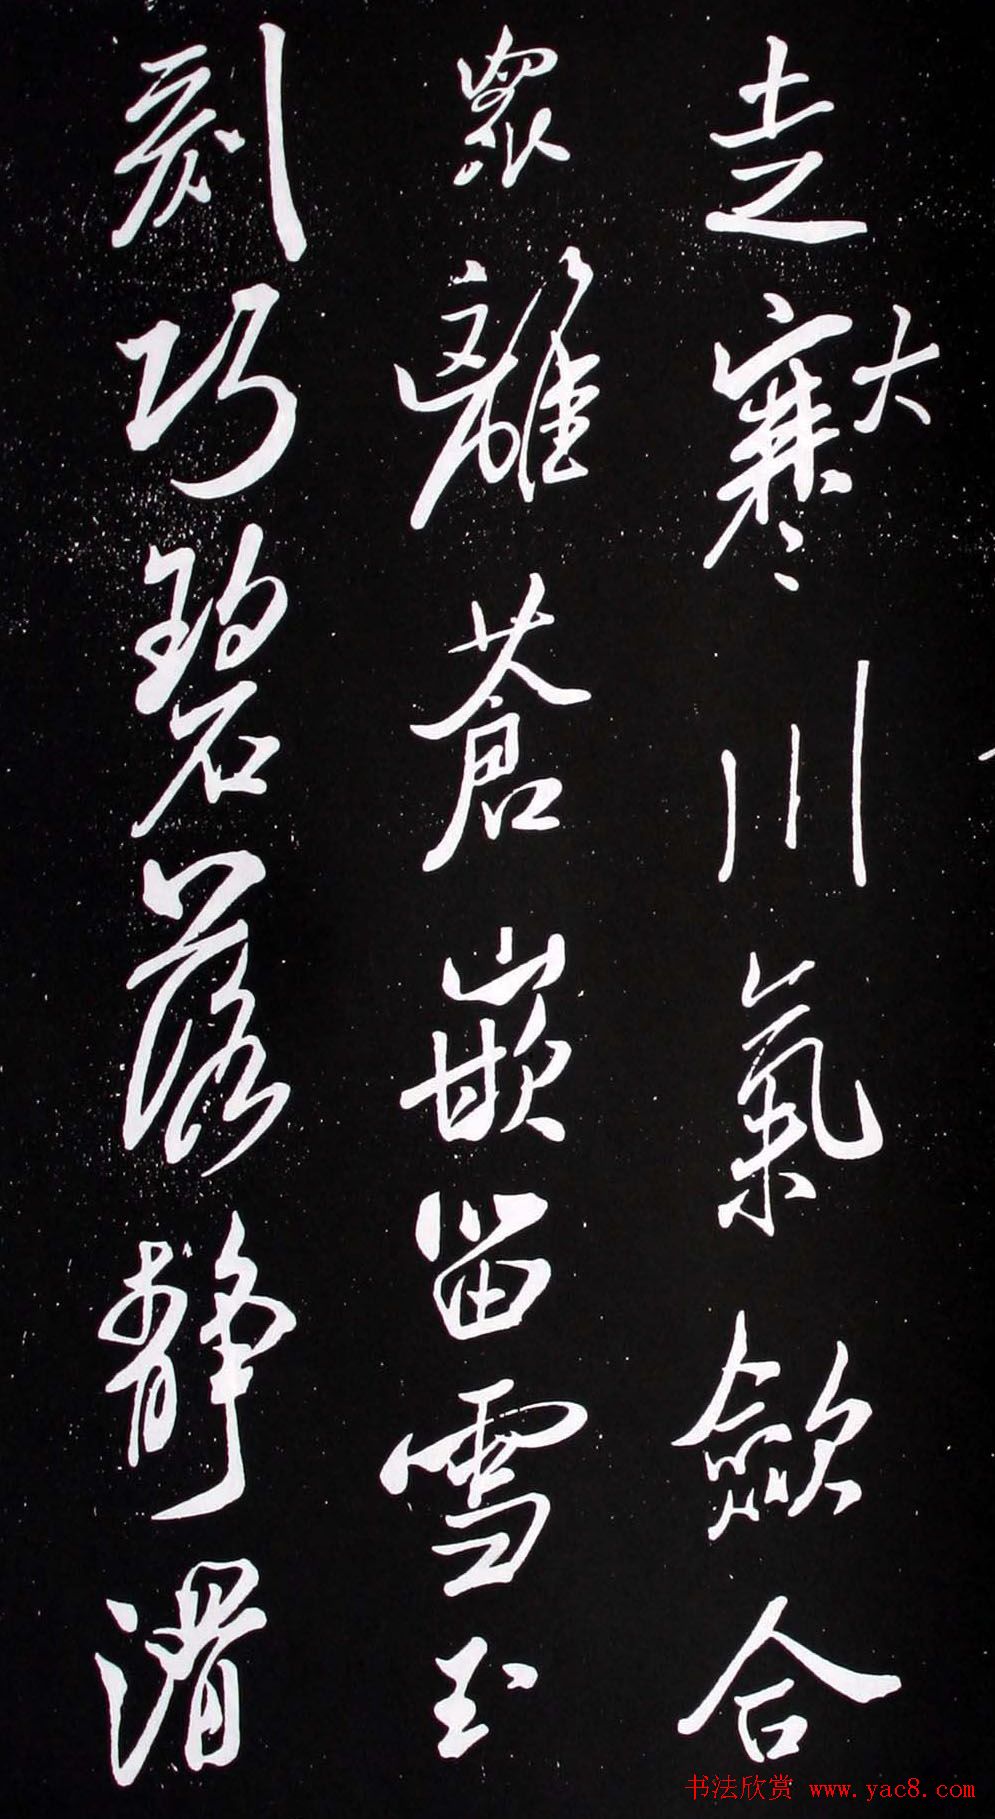 走大寒川氣斂合
眾離蒼嵌留雪玉
刻巧碧落靜滑
书法欣赏 www.yac8.com